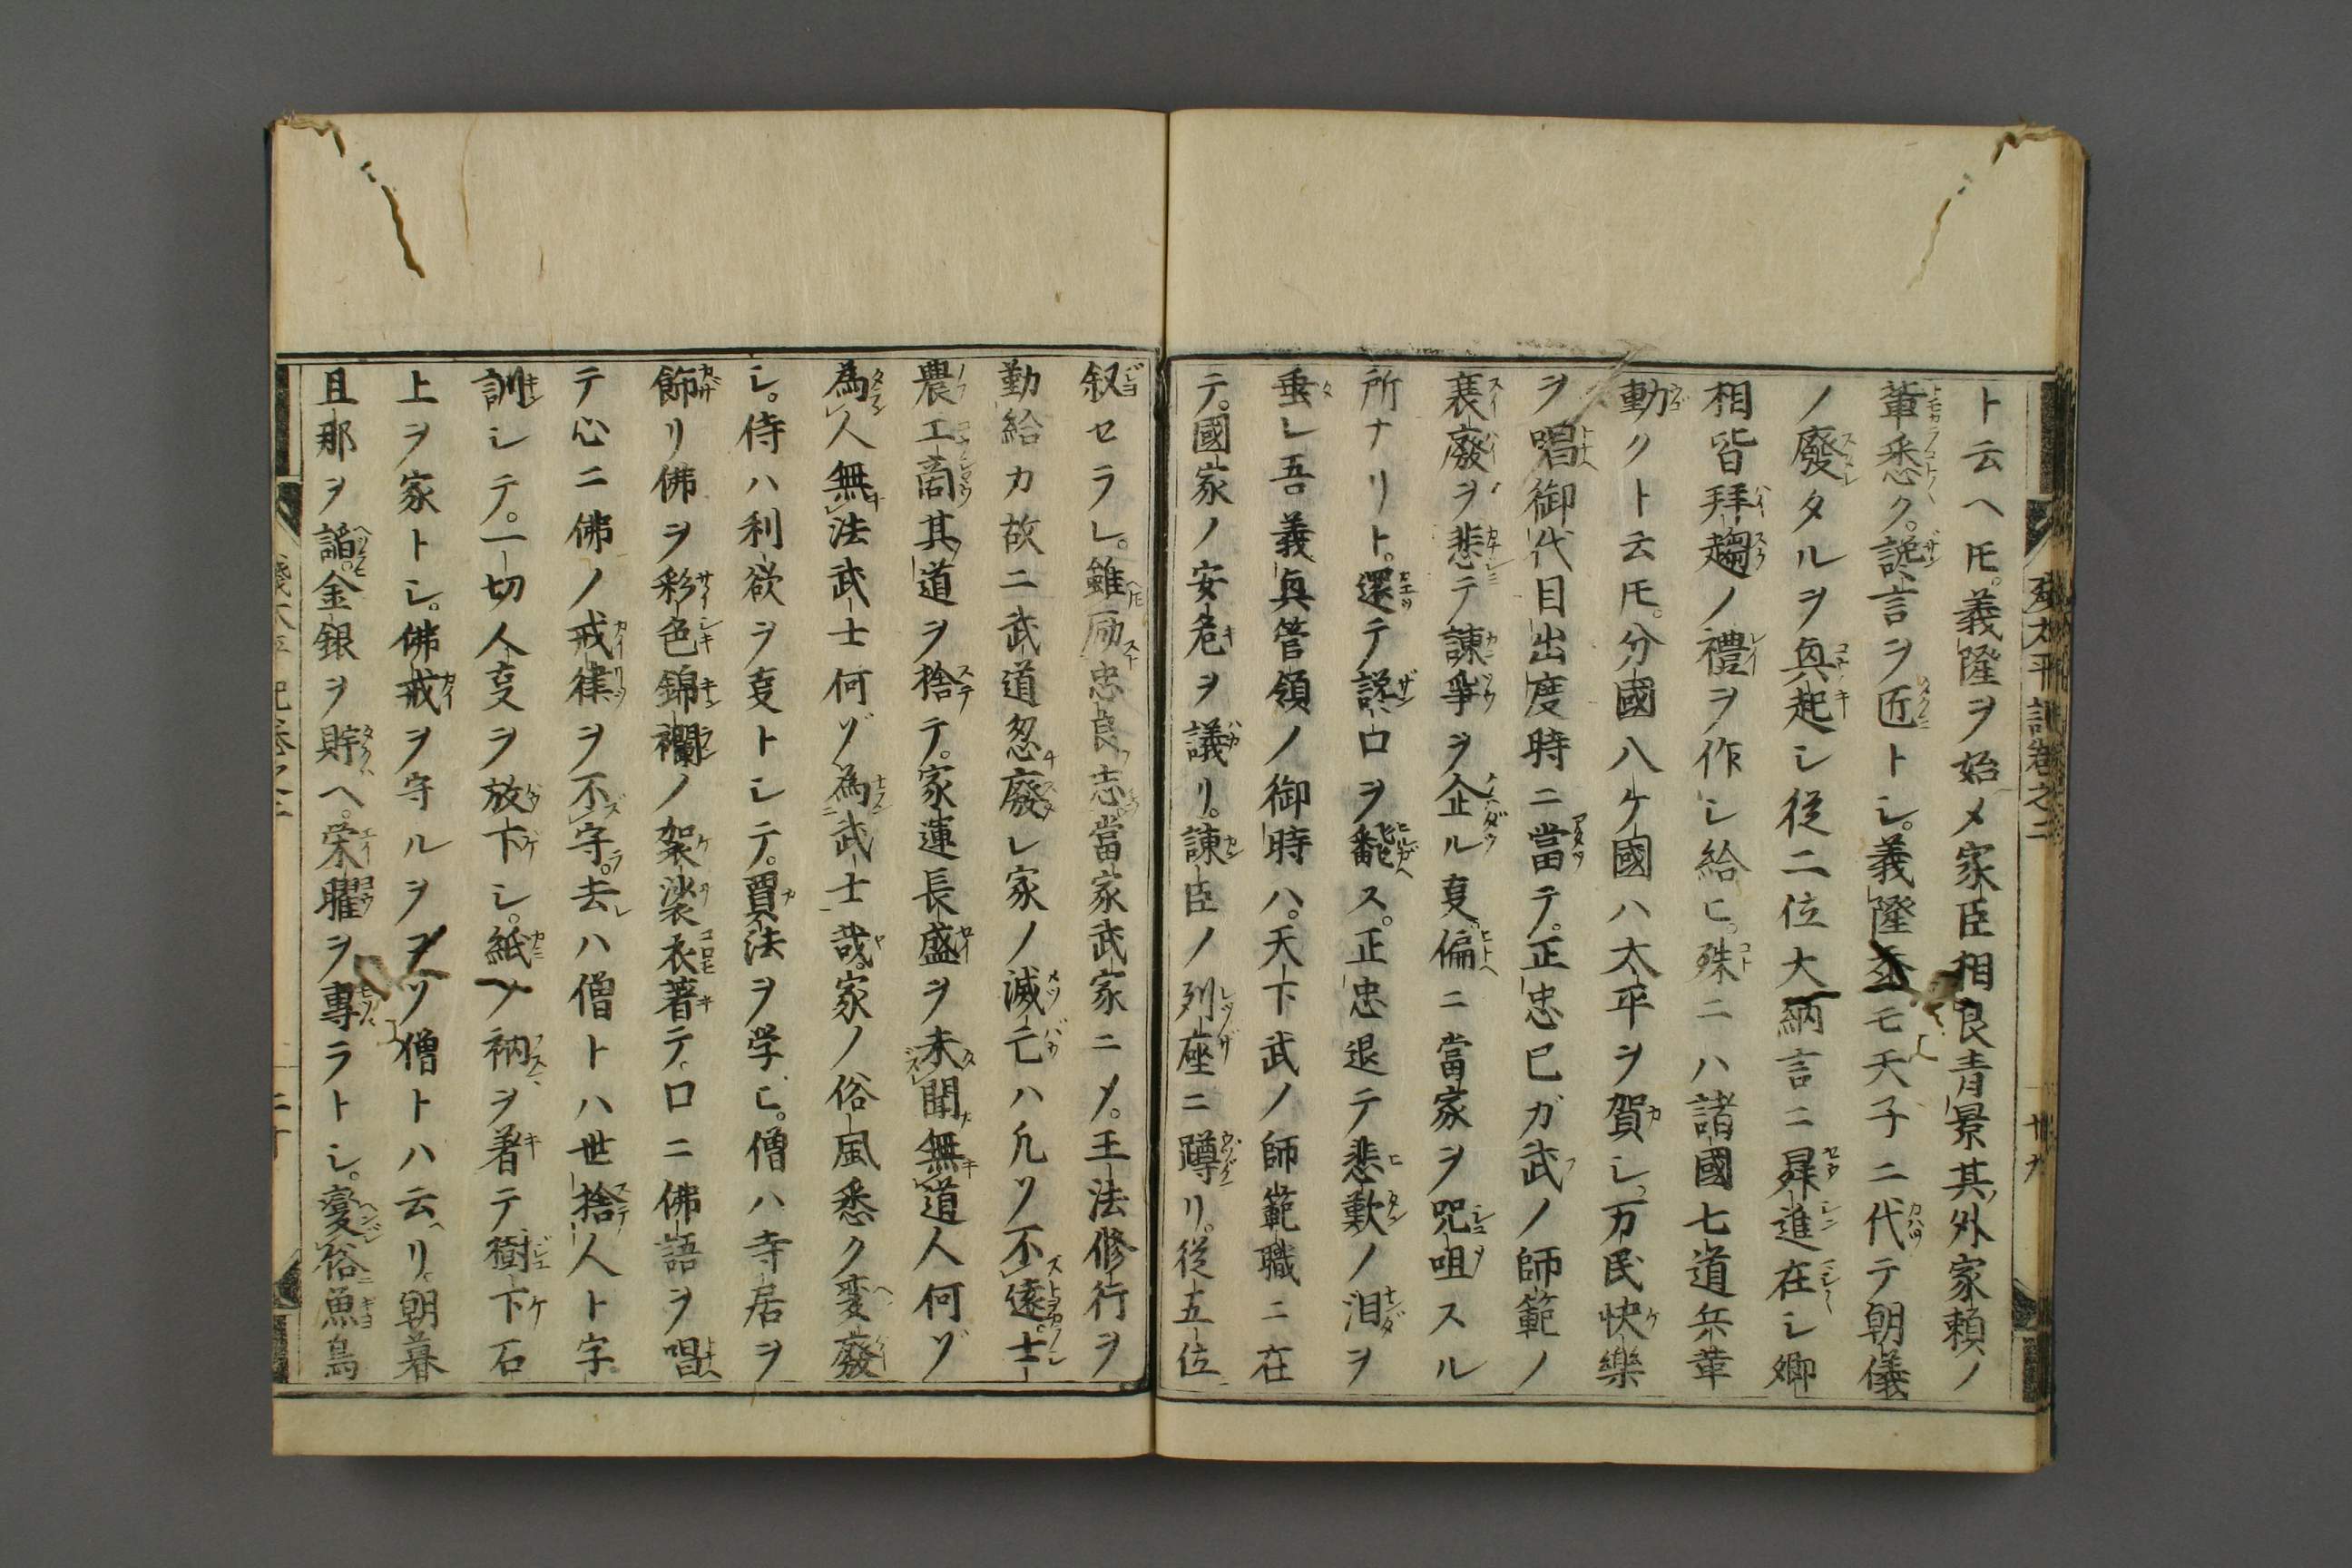 残太平記卷之二
廿九
ト云ヘ𪜈。義隆ヲ始メ家臣相良青景其外家頼ノ
輩悉ク。讒言ヲ匠トシ。義隆忝モ天子ニ代テ朝儀
ノ廢タルヲ興起シ従二位大納言ニ昇進在シ郷
相皆拜趨ノ禮ヲ作シ給ヒ。殊ニハ諸國七道兵革
動クト云𪜈。分國八ケ國ハ太平ヲ賀シ。万民快樂
ヲ唱御代目出度時ニ當テ。正忠已ガ武ノ師範ノ
衰廢ヲ悲テ諫爭ヲ企ル叓。偏ニ當家ヲ咒咀スル
所ナリト。還テ讒口ヲ飜ス。正忠退テ悲歎ノ泪ヲ
垂レ吾義興管領ノ御時ハ。天下武ノ師範職ニ在
テ。國家ノ安危ヲ議リ。諫臣ノ列座ニ蹲リ。従五位
叙セラレ。雖励忠良志當家武家ニメ。王法修行ヲ
勤給カ故ニ武道忽廢レ家ノ滅亡ハ凡ソ不遠。士
農工商其道ヲ捨テ。家運長盛ヲ未聞無道人何ゾ
為人無法武士何ゾ為武士哉。家ノ俗風悉ク変廢
シ。侍ハ利欲ヲ叓トシテ。買法ヲ学ヒ。僧ハ寺居ヲ
飾リ佛ヲ彩色錦襴ノ袈裟衣著テ。口ニ佛語ヲ唱
テ心ニ佛ノ戒律ヲ不守。去ハ僧トハ世捨人ト字
訓シテ。一切人叓ヲ放下シ。紙ノ衲ヲ着テ樹下石
上ヲ家トシ。佛戒ヲ守ルヲヲソ僧トハ云ヘリ。朝暮
且那ヲ諂。金銀ヲ貯ヘ。栄曜ヲ專ラトシ。變俗魚鳥
残太平記卷之二
三十